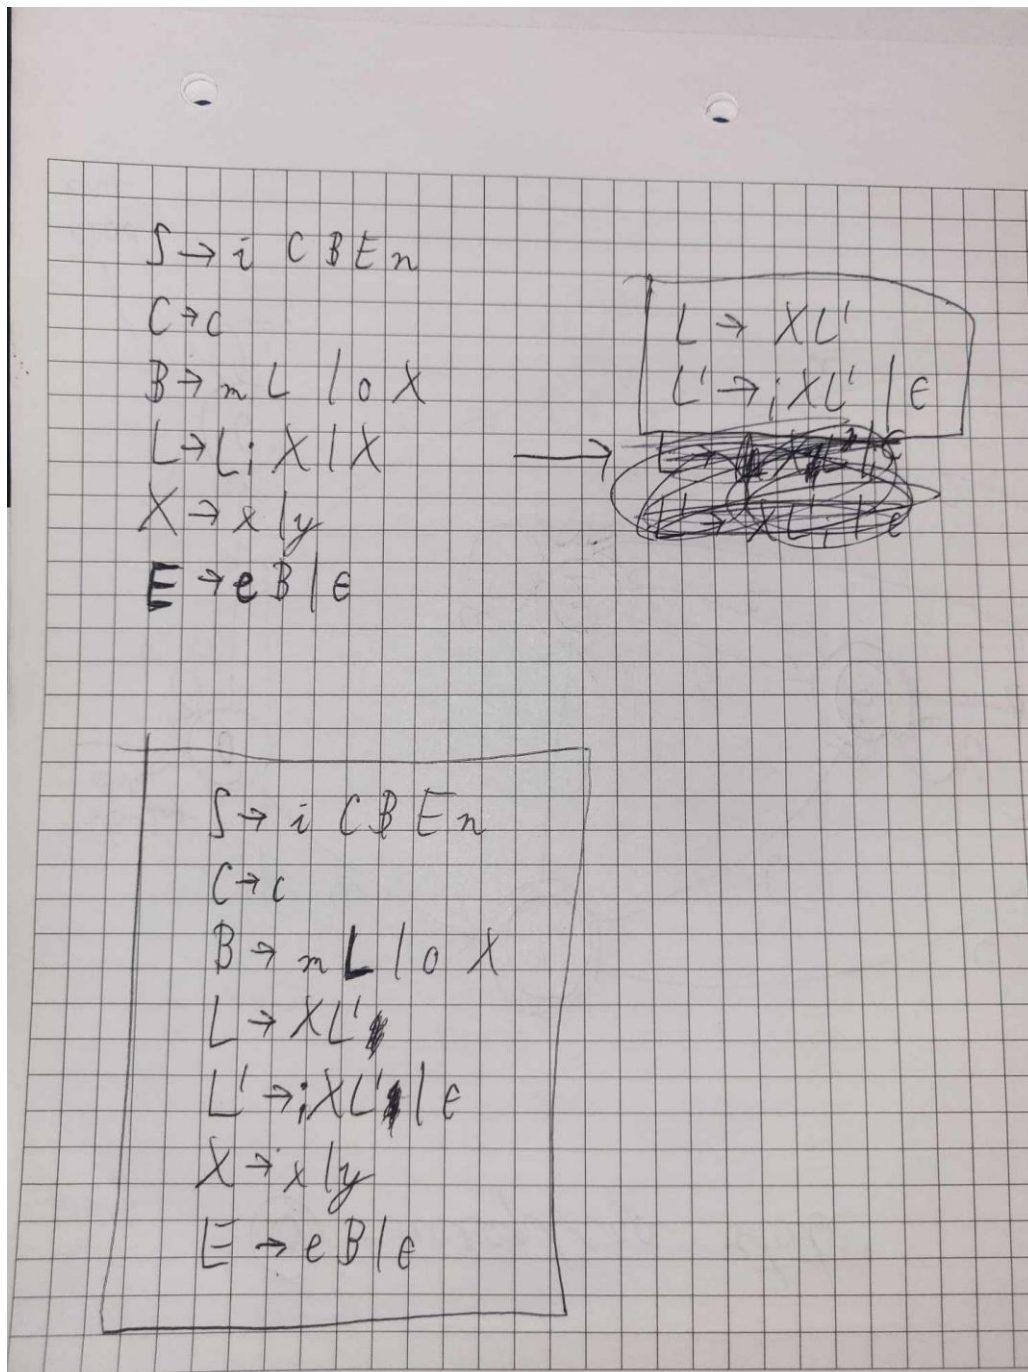 S → i C B E n
C → c
B → m L | o X
L → L ; X | X
X → x | y
E → e B | ϵ
→
L → X L'
L' → ; X L' | ϵ
S → i C B E n
C → c
B → m L | o X
L → X L'
L' → ; X L' | ϵ
X → x | y
E → e B | ϵ